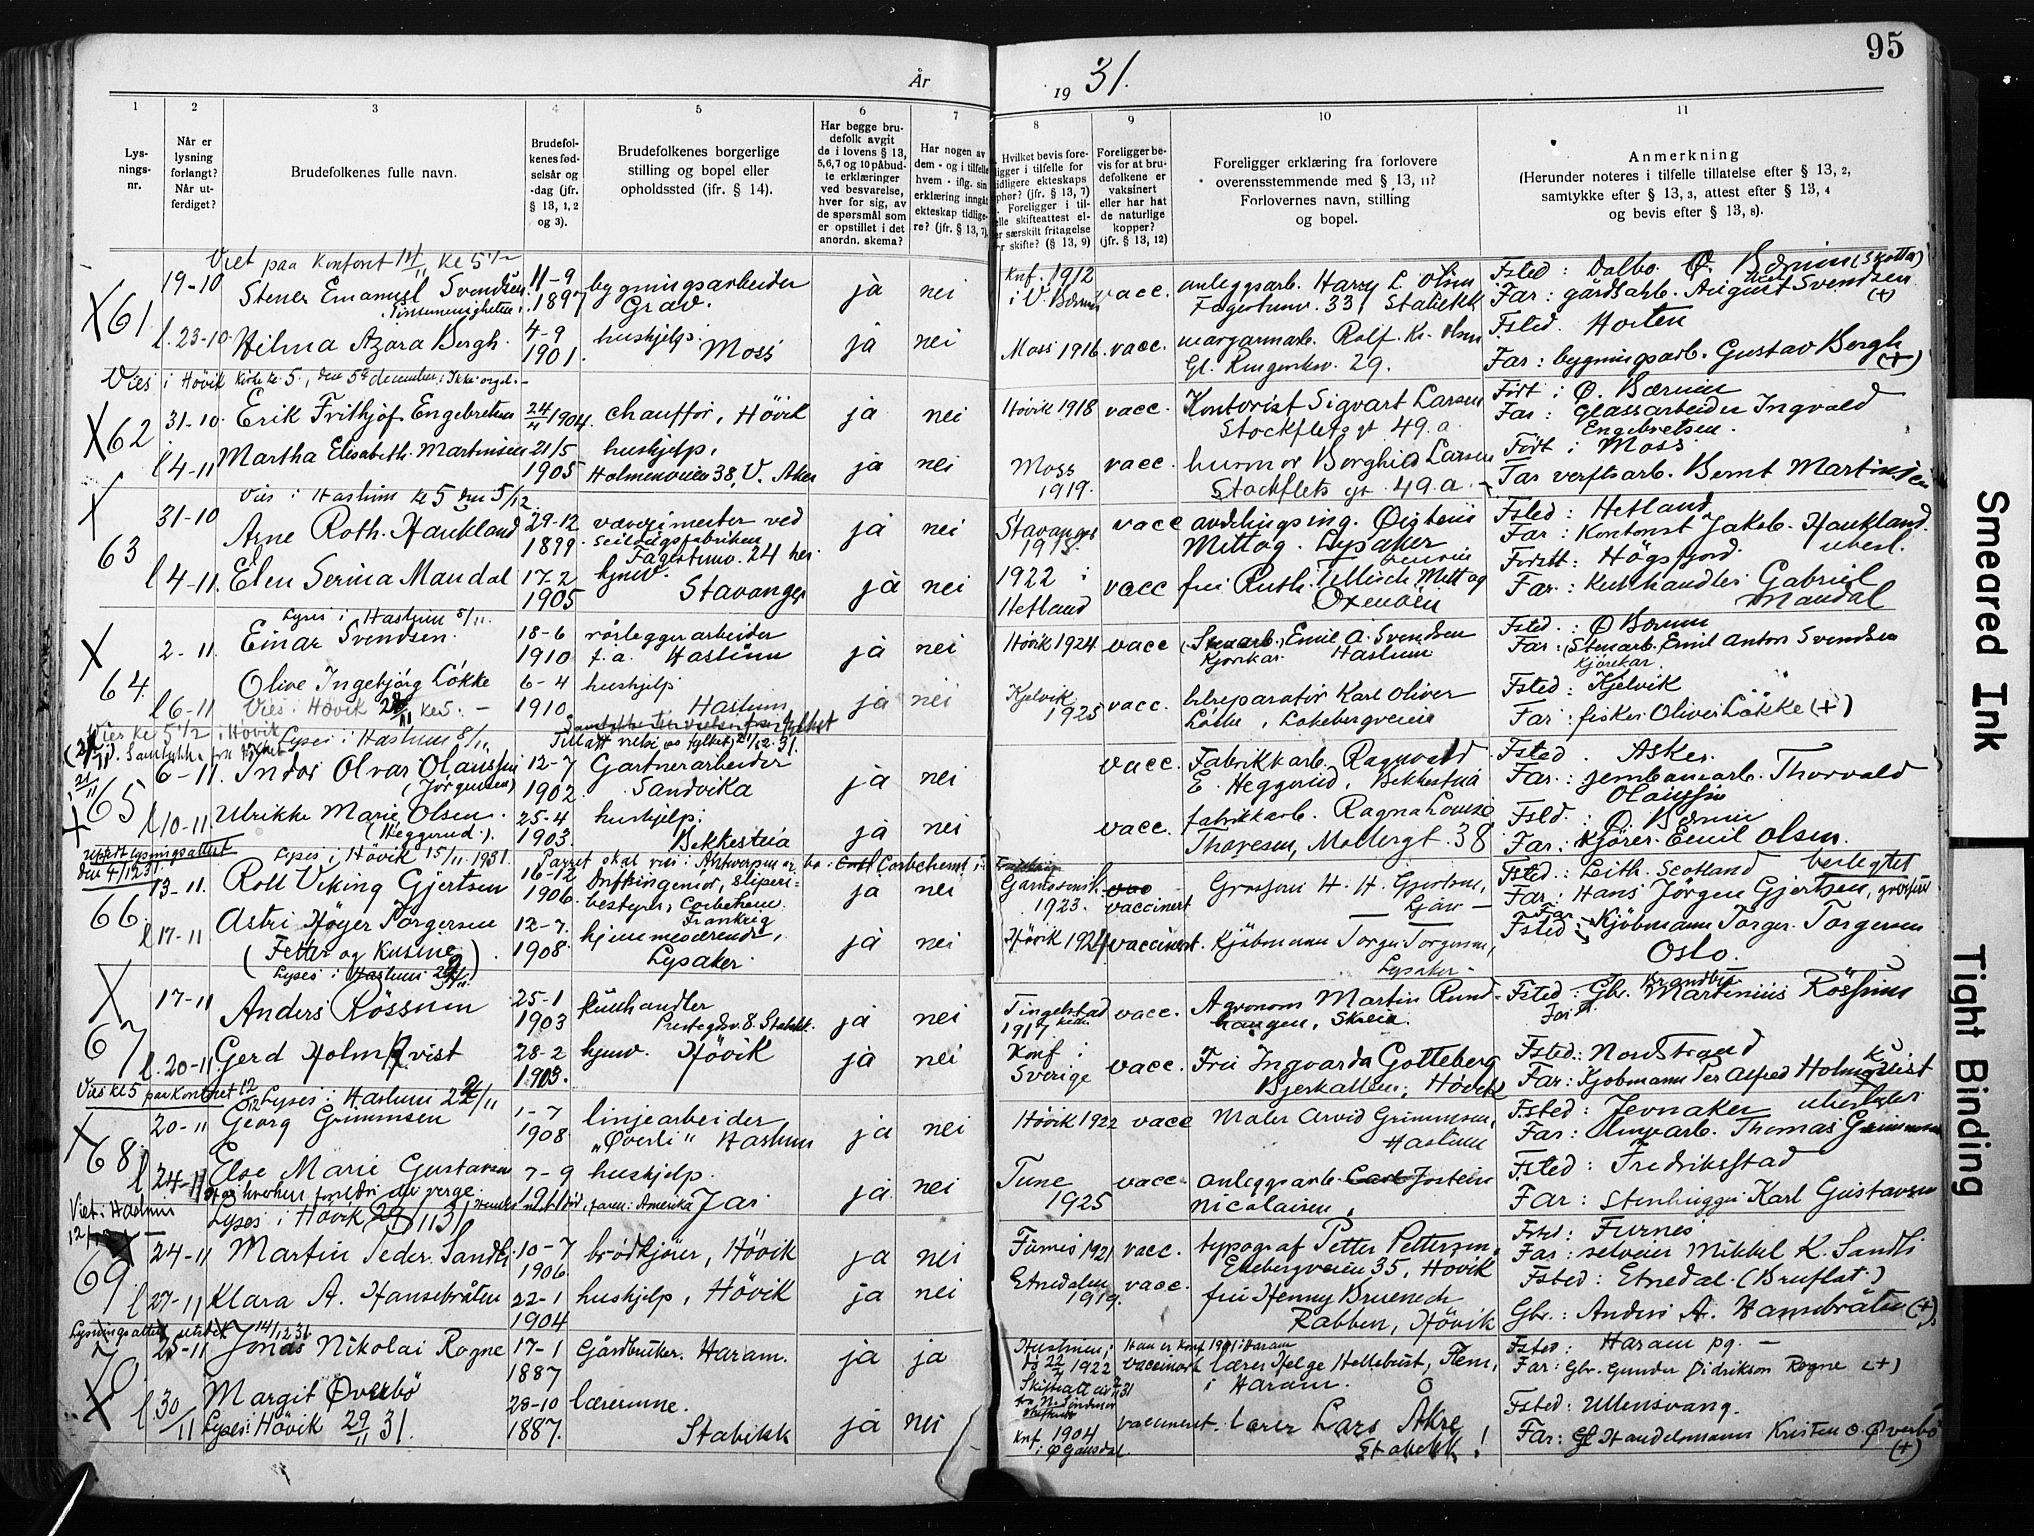 95
År 1931.
1 2 3 4 5 6 7 8 9 10 11
Lys-
nings-
nr.
Når er
lysning
forlangt?
Når ut-
ferdiget?
Brudefolkenes fulle navn.
Brudefol-
kenes fød-
selsår og
-dag (jfr.
§ 13, 1, 2
og 3).
Brudefolkenes borgerlige
stilling og bopel eller
opholdssted (jfr. § 14).
Har begge bru-
defolk avgit
de i lovens § 13,
5,6,7 og 10 påbud-
te erklæringer
ved besvarelse,
hver for sig, av
de spørsmål som
er opstillet i det
anordn. skema?
Har nogen av
dem - og i tilfelle
hvem - iflg. sin
erklæring inngått
ekteskap tidlige-
re? (jfr. § 13, 7).
Hvilket bevis fore-
ligger i tilfelle for
tidligere ekteskaps
ophør? (jfr. § 13, 7)
Foreligger i til-
felle skifteattest el-
er særskilt fritagelse
for skifte? (§ 13, 9)
Foreligger be-
vis for at bru-
defolkene er
vaksinert
eller har hat
de naturlige
kopper?
(jfr. § 13, 12)
Foreligger erklæring fra forlovere
overensstemmende med § 13, 11?
Forlovernes navn, stilling
og bopel.
Anmerkning
(Herunder noteres i tilfelle tillatelse efter § 13, 2,
samtykke efter § 13, 3, attest efter § 13, 4
og bevis efter § 13, 8).
Viet paa Kontoret 14/11 kl 5 1/2
X 61 19-10 Stener Emanuel Svendsen 11-9 1897 bygningsarbeider Grav. ja nei Knf. 1912 i V. Bærum vacc. anleggsarb. Harry L. Olsen Fagertunv. 33, Stabekk Fsted: Dalbo Ø. Bærum Far: gårdsarb. August Svendsen (+)
l. 23-10 Hilma Azora Bergh. 4-9 1901. hushjelp. Moss ja nei Moss 1916. vacc. margarinarb. Rolf Kr. Olsen Gl. Ringeriksv. 29. Fsted. Horten Far: bygningsarb. Gustav Bergh (+)
Vies i Hövik kirke kl. 5, den 5te december. Ikke orgel. -
X 62 31-10. Erik Frithjof Engebretsen 24/11 1904. chauffør, Hövik ja nei Hövik 1918 vacc. Kontorist Sigvart Larsen Stockflets gt 49.a. Født i Ø. Bærum Far: Glassarbeider Ingvald Engebretsen.
l 4-11 Martha Elisabeth Martinsen 21/5 1905 hushjelp, Holmenveien 38, V. Aker ja nei Moss 1919. vacc. husmor Borghild Larsen Stockflets gt. 49.a. - Født i Moss Far verftsarb. Bernt Martinsen
Vies i Haslum kl 5 den 5/12
X 63 31-10 Arne Roth Haukland 29-12 1899. væverimester ved Seildugsfabriken Fagertunv. 24 ja nei Stavanger vacc avdelingsing. Mittag. Lysaker Fsted: Hetland Far: Kontorist Jakob Haukland.
l 4-11. Elen Serina Maudal 17-2 1905 hjemv. Stavanger ja nei 1922 i Hetland vacc fru Ruth Tellisch Mittag Oxenöen Far: Kulhandler Gabriel Maudal
Lyses i Haslum 8/11.
X 64. 2-11. Einar Svendsen. 18-6 1910 rörleggerarbeider f.a. Haslum ja nei Hövik 1924 vacc (Stenarb.) Emil A. Svendsen Kjörekar Haslum Fsted.: Ö Bærum Far: (Stenarb.) Emil Anton Svendsen Kjörekar.
l 6-11 Olive Ingebjörg Lökke 6-4 1910. hushjelp Haslum ja nei Kjelvik 1925 vacc. bilreparatör Karl Oliver Lökke, Fsted: Kjelvik Far: fisker Oliver Lökke (+)
Vies i Hövik kl 5. -
Lyses i Haslum 8/11
65 6-11. Indor Olvar Olaussen (Jörgensen) 12-7 1902. Gartnerarbeider Sandvika ja nei vacc. Fabrikkarb. Ragnvald E. Heggerud, Bekkestua Fsted. Asker. Far: jernbanearb. Thorvald Olaussen
X l 10-11 Ulrikke Marie Olsen. (Heggerud). 25-4 1903. hushjelp: Bekkestua ja nei vacc. fabrikkarb. Ragna Lovise Thoresen, Mollergt. 38 Fsted: Ø. Bærum Far: Kjörer Emil Olsen.
Utstedt lysningsattest den 4/12 31.
Lyses i Hövik 15/11 1931.
66. 13-11. Rolf Viking Gjertsen 16-12 1906. Driftsingeniør, ja nei 1923. vaccinert Grosserer H. H. Gjertsen, Fsted: Leith. Scotland Far: Hans Jörgen Gjertsen,
l 17-11 Astri Höyer Torgersen 12-7. 1908 hjemmeværende, Lysaker. ja nei Hövik 1924 vaccinert. Kjöbmann Torger Torgersen, Lysaker. Far Kjöbmann Torger Torgersen Fsted: Oslo.
(Fetter og Kusine)
Lyses i Haslum 22/11.
X 67 17-11 Anders Rössum 25-1 1903 kulhandler Prestegdsv. 8. Stabekk. ja nei Tingelstad 1917 vacc. Agronom Martin Rund-haugen, Skreia. Fsted: Brandbu Far Gbr. Martinius Rössum
l. 20-11 Gerd Holmqvist 28-2 1903. hjemv. Hövik ja nei Konf i Sverige vacc. Fru Ingvarda Gotteberg Bjerkalléen, Hövik Fsted.: Nordstrand Far: Kjöbmann Per Alfred Holmqvist
Vies kl 5 paa Kontoret 12/12
Lyses i Haslum 22/11
X 68 20-11 Georg Grimmsen 1-7 1908 linjearbeider "Øverli" Haslum ja nei Hövik 1922 vacc Maler Arvid Grimmsen, Haslum F.sted: Jevnaker Far: Thomas Grimmsen
l 24-11 Else Marie Gustavsen 7-9 hushjelp. Jar. ja nei Tune 1925 vacc. anleggsarb. Jostein Nicolaisen. Fsted: Fredrikstad Far: Stenhugger Karl Gustavsen
Viet i Haslum
Lyses i Hövik 29/11 31.
69 24-11 Martin Peder Sandli. 10-7 1906. brödkjörer, Hövik ja nei Furnes 1921 vacc. typograf Petter Pettersen, 35, Hövik Fsted: Furnes Far: selveier Mikkel K. Sandli
l 27-11 Klara A. Hansebråten 22-1 1904 hushjelp, Hövik ja nei Etnedalen 1919. vacc. fru Henny Bruenech Rabben, Hövik Fsted: Etnedal. (Bruflat.) Gbr. Anders A. Hansebråten (+).
Lysningsattest utstedt 14/12 31
70 25-11 Jonas Nikolai Rogne 17-1 1887 Gårdbruker. Haram. ja ja 1922 Han er konf 1901 i Haram vaccinert lærer Helge Hellebust, i Haram. Fsted: Haram pg. - Far: Gbr. Gunder Didrikson Rogne (+)
X l 30/11 Margit Øverbö 28-10 1887. lærerinne. Stabekk ja nei Knf. 1904 i Ø Gausdal vaccinert. Lærer Lars Åkre Stabekk! Fsted: Ullensvang. Far: Handelsmann Kristen O. Øverbö (+)
Lyses i Hövik 29/11 31.
Smeared Ink
Tight Binding